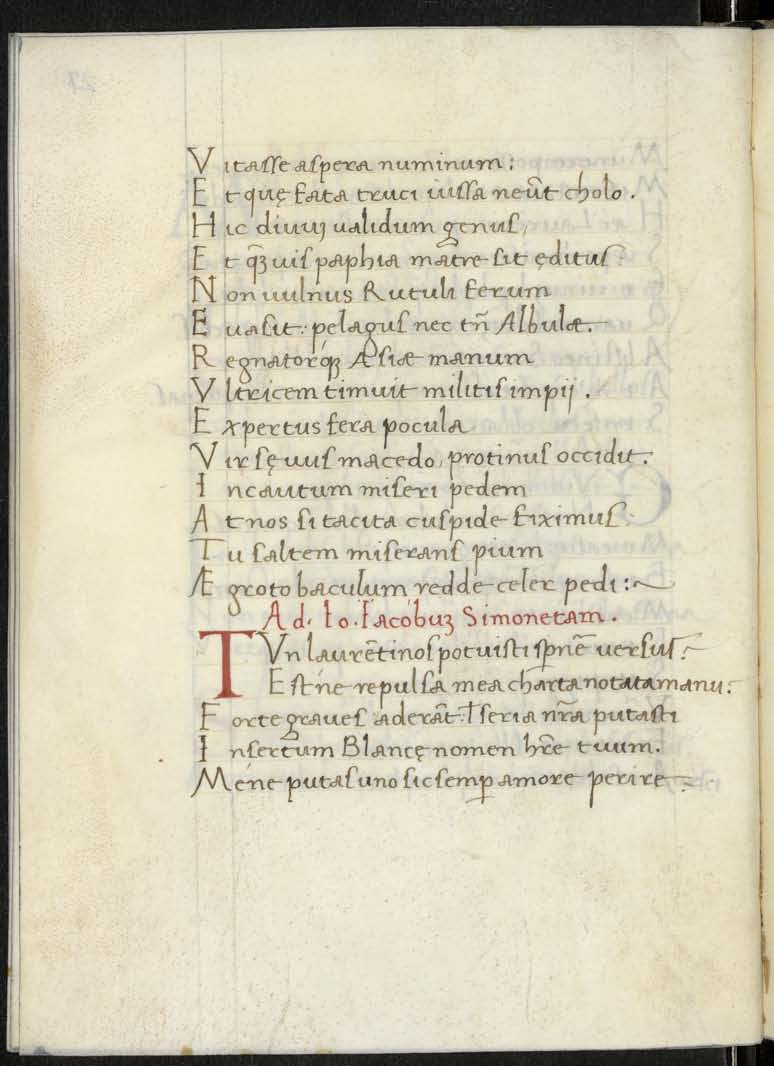 Vitasse aspera numinum:
Et quę fata truci iussa neūt cholo.
Hic diuuꝫ ualidum genus,
Et q̄ꝫuis paphia matre sit ęditus:
Non uulnus Rutuli ferum
Euasit: pelagus nec tn̄ Albulæ.
Regnatorq́ꝫ Æsiæ manum
Vltricem timuit militis impij.
Expertus fera pocula
Vir sęuus macedo, protinus occidit.
Incautum miseri pedem
At nos si tacita cuspide fiximus:
Tu saltem miserans pium
Ægroto baculum redde celer pedi:~
Ad. Io. Iacobuꝫ Simonetam.
TVn laurētinos potuisti sp̄nē uersus?
Est́ne repulsa mea charta notata manu?
Forte graues aderāt: l̄ seria nr̄a putasti
Insertum Blancę nomen hr̄e tuum.
Méne putas uno sic semꝑ amore perire?